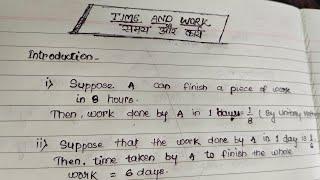 TIME AND WORK
समय और कार्य
Introduction-
i) Suppose A can finish a piece of work
in 8 hours.
Then, work done by A in 1 hour = 1/8 (By Unitary
ii) Suppose that the work done by A in 1 day is 1/6
Then, time taken by A to finish the whole
work = 6 days.